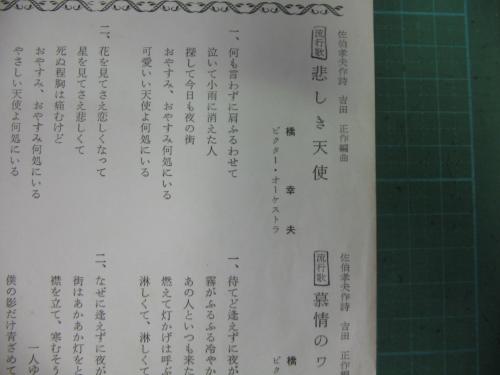 佐伯孝夫作詩 吉田 正作編曲
流行歌 悲しき天使
橋 幸夫
ビクター・オーケストラ
一、何も言わずに肩ふるわせて
泣いて小雨に消えた人
探して今日も夜の街
おやすみ、おやすみ何処にいる
可愛いい天使よ何処にいる
二、花を見てさえ恋しくなって
星を見てさえ悲しくて
死ぬ程胸は痛むけど
おやすみ、おやすみ何処にいる
やさしい天使よ何処にいる
佐伯孝夫作詩 吉田 正作編
流行歌 慕情のワ
橋
ビク
一、待てど逢えずに夜が
霧がふるふる冷やか
あの人といつも来た
燃えて灯かげは呼ぶ
淋しくて、淋しくて
二、なぜに逢えずに夜が
街はあかあか灯をと
襟を立て、寒むそう
一人ゆ
僕の影だけ青ざめて